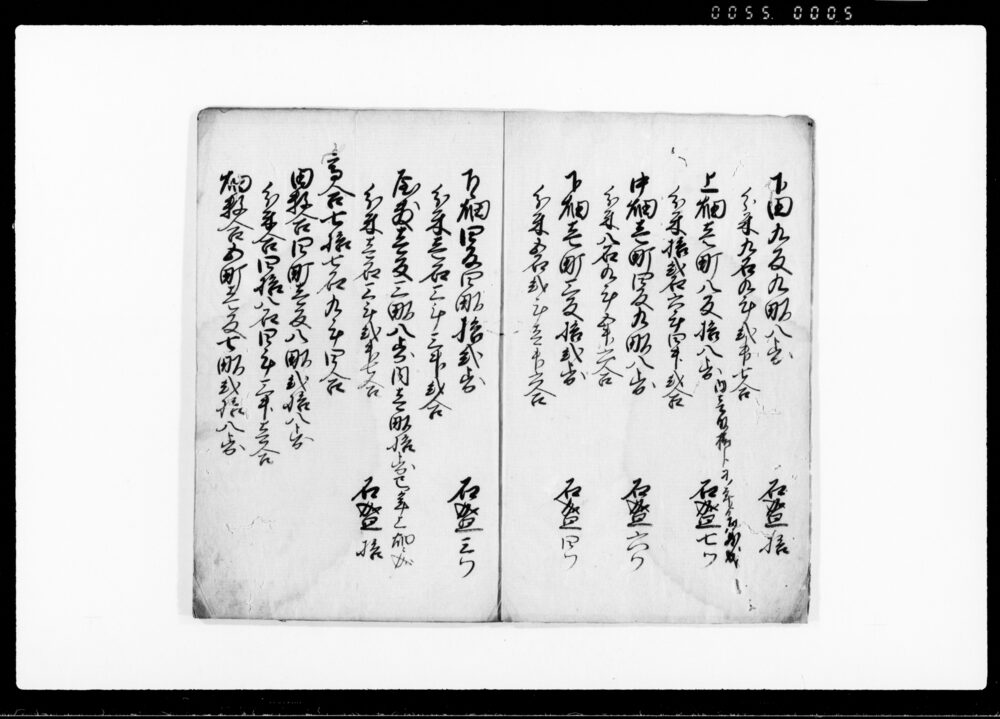 0055 0005
下田九反九畝八歩 石盛拾
分米九石九斗弐升七合
上畑壱町八反拾八歩 内 石盛七ツ
分米拾弐石六斗四升弐合
中畑壱町四反九畝八歩 石盛六ツ
分米八石九斗五升六合
下畑壱町三反拾弐歩 石盛四ツ
分米五石弐斗壱升六合
下々畑四反四畝拾弐歩 石盛三ツ
分米壱石三斗三升弐合
屋敷壱反三畝八歩 内壱畝拾歩 石盛拾
分米壱石三斗弐升七合
高合七拾七石九斗四合
田数合四町壱反八畝弐拾八歩
分米合四拾八石四斗三升壱合
畑数合五町壱反七畝弐拾八歩